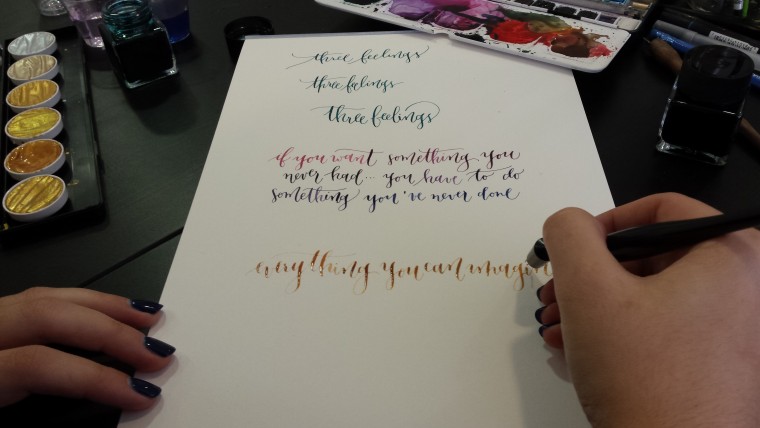 three feelings
three feelings
three feelings
if you want something you
never had... you have to do
something you've never done
everything you can imagin